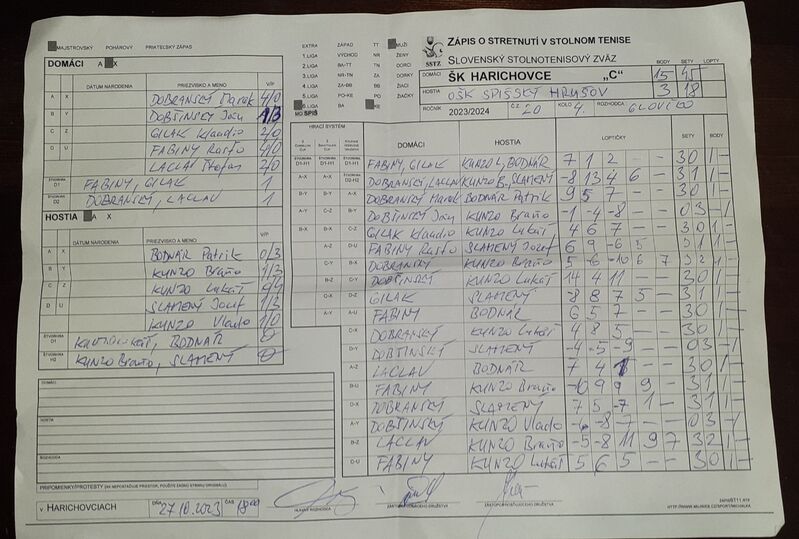 MAJSTROVSKÝ POHÁROVÝ PRIATEĽSKÝ ZÁPAS
DOMÁCI A X
DÁTUM NARODENIA PRIEZVISKO A MENO V/P
A X DOBRANSKÝ Marek 4/0
B Y DOBŠINSKÝ Ján 1/3
C Z GILAK Klaudio 2/0
D U FABINY Rasťo 4/0
LACLAV Štefan 2/0
ŠTVORHRA D1 FABINY, GILAK 1
ŠTVORHRA D2 DOBRANSKÝ, LACLAV 1
HOSTIA A X
DÁTUM NARODENIA PRIEZVISKO A MENO V/P
A X BODNÁR Patrik 0/3
B Y KUNZO Braňo 1/3
C Z KUNZO Lukáš 0/4
D U SLAMENÝ Jozef 1/3
KUNZO Vlado 1/0
ŠTVORHRA H1 KUNZO Lukáš, BODNÁR 0
ŠTVORHRA H2 KUNZO Braňo, SLAMENÝ 0
DOMÁCI
HOSTIA
ROZHODCA
PRIPOMIENKY/PROTESTY (AK NEPOSTAČUJE PRIESTOR, POUŽITE ZADNÚ STRANU ORIGINÁLU)
V HARICHOVCIACH DŇA 27.10.2023 ČAS 18:00
HLAVNÝ ROZHODCA
ZA DOMÁCE DRUŽSTVO
ZA HOSŤUJÚCE DRUŽSTVO
EXTRA ZÁPAD TT MUŽI
1.LIGA VÝCHOD NR ŽENY
2.LIGA BA-TT TN DORCI
3.LIGA NR-TN ZA DORKY
4.LIGA ZA-BB BB ŽIACI
5.LIGA PO-KE PO ŽIAČKY
6.LIGA BA KE
MO SPIŠ
SSTZ
ZÁPIS O STRETNUTÍ V STOLNOM TENISE
SLOVENSKÝ STOLNOTENISOVÝ ZVÄZ
BODY SETY LOPTY
DOMÁCI ŠK HARICHOVCE „C" 15 45
HOSTIA OŠK SPIŠSKÝ HRUŠOV 3 18
ROČNÍK 2023/2024 Č.Z. 20 KOLO 4. ROZHODCA GLOVIČKO
HRACÍ SYSTÉM
DOMÁCI HOSTIA LOPTIČKY SETY BODY
FABINY, GILAK KUNZO L, BODNÁR 7 1 2 – – 3 0 1 –
DOBRANSKÝ, LACLAV KUNZO B., SLAMENÝ -8 13 4 6 – 3 1 1 –
DOBRANSKÝ Marek BODNÁR Patrik 9 5 7 – – 3 0 1 –
DOBŠINSKÝ Ján KUNZO Braňo -1 -4 -8 – – 0 3 – 1
GILAK Klaudio KUNZO Lukáš 4 6 7 – – 3 0 1 –
FABINY Rasťo SLAMENÝ Jozef 6 9 -6 5 – 3 1 1 –
DOBRANSKÝ KUNZO Braňo 5 -6 -10 6 7 3 2 1 –
DOBŠINSKÝ KUNZO Lukáš 14 4 11 – – 3 0 1 –
GILAK SLAMENÝ -8 8 7 5 – 3 1 1 –
FABINY BODNÁR 6 5 7 – – 3 0 1 –
DOBRANSKÝ KUNZO Lukáš 4 8 5 – – 3 0 1 –
DOBŠINSKÝ SLAMENÝ -4 -5 -9 – – 0 3 – 1
LACLAV BODNÁR 7 4 – – 3 0 1 –
FABINY KUNZO Braňo -10 9 9 9 – 3 1 1 –
DOBRANSKÝ SLAMENÝ 7 5 -7 1 – 3 1 1 –
DOBŠINSKÝ KUNZO Vlado -6 -8 -7 – – 0 3 – 1
LACLAV KUNZO Braňo -5 -8 11 9 7 3 2 1 –
FABINY KUNZO Lukáš 5 6 5 – – 3 0 1 –